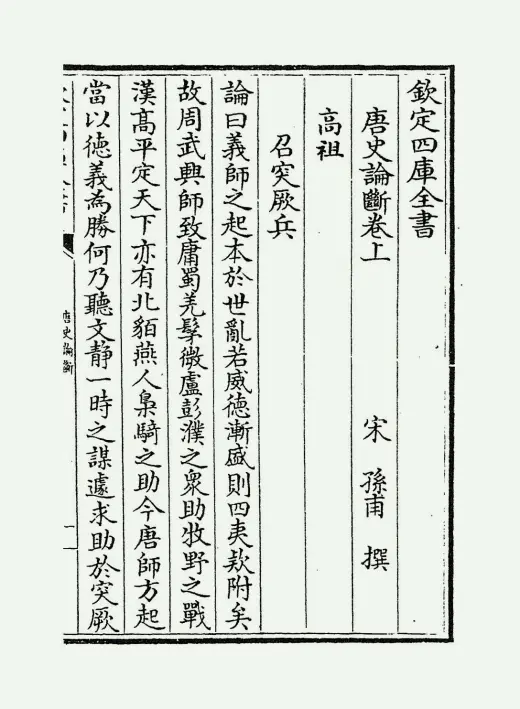 欽定四庫全書
唐史論斷卷上
宋 孫甫 撰
高祖
召突厥兵
論曰義師之起本於世亂若威德漸盛則四夷欵附矣
故周武興師致庸蜀羌髳微盧彭濮之衆助牧野之戰
漢髙平定天下亦有北貊燕人梟騎之助今唐師方起
當以徳義為勝何乃聽文静一時之謀遽求助於突厥
唐史論斷
一